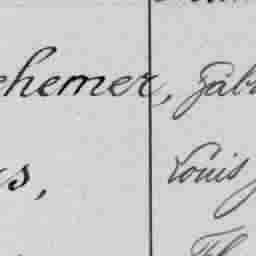 ehemer, Gab
s, Louis